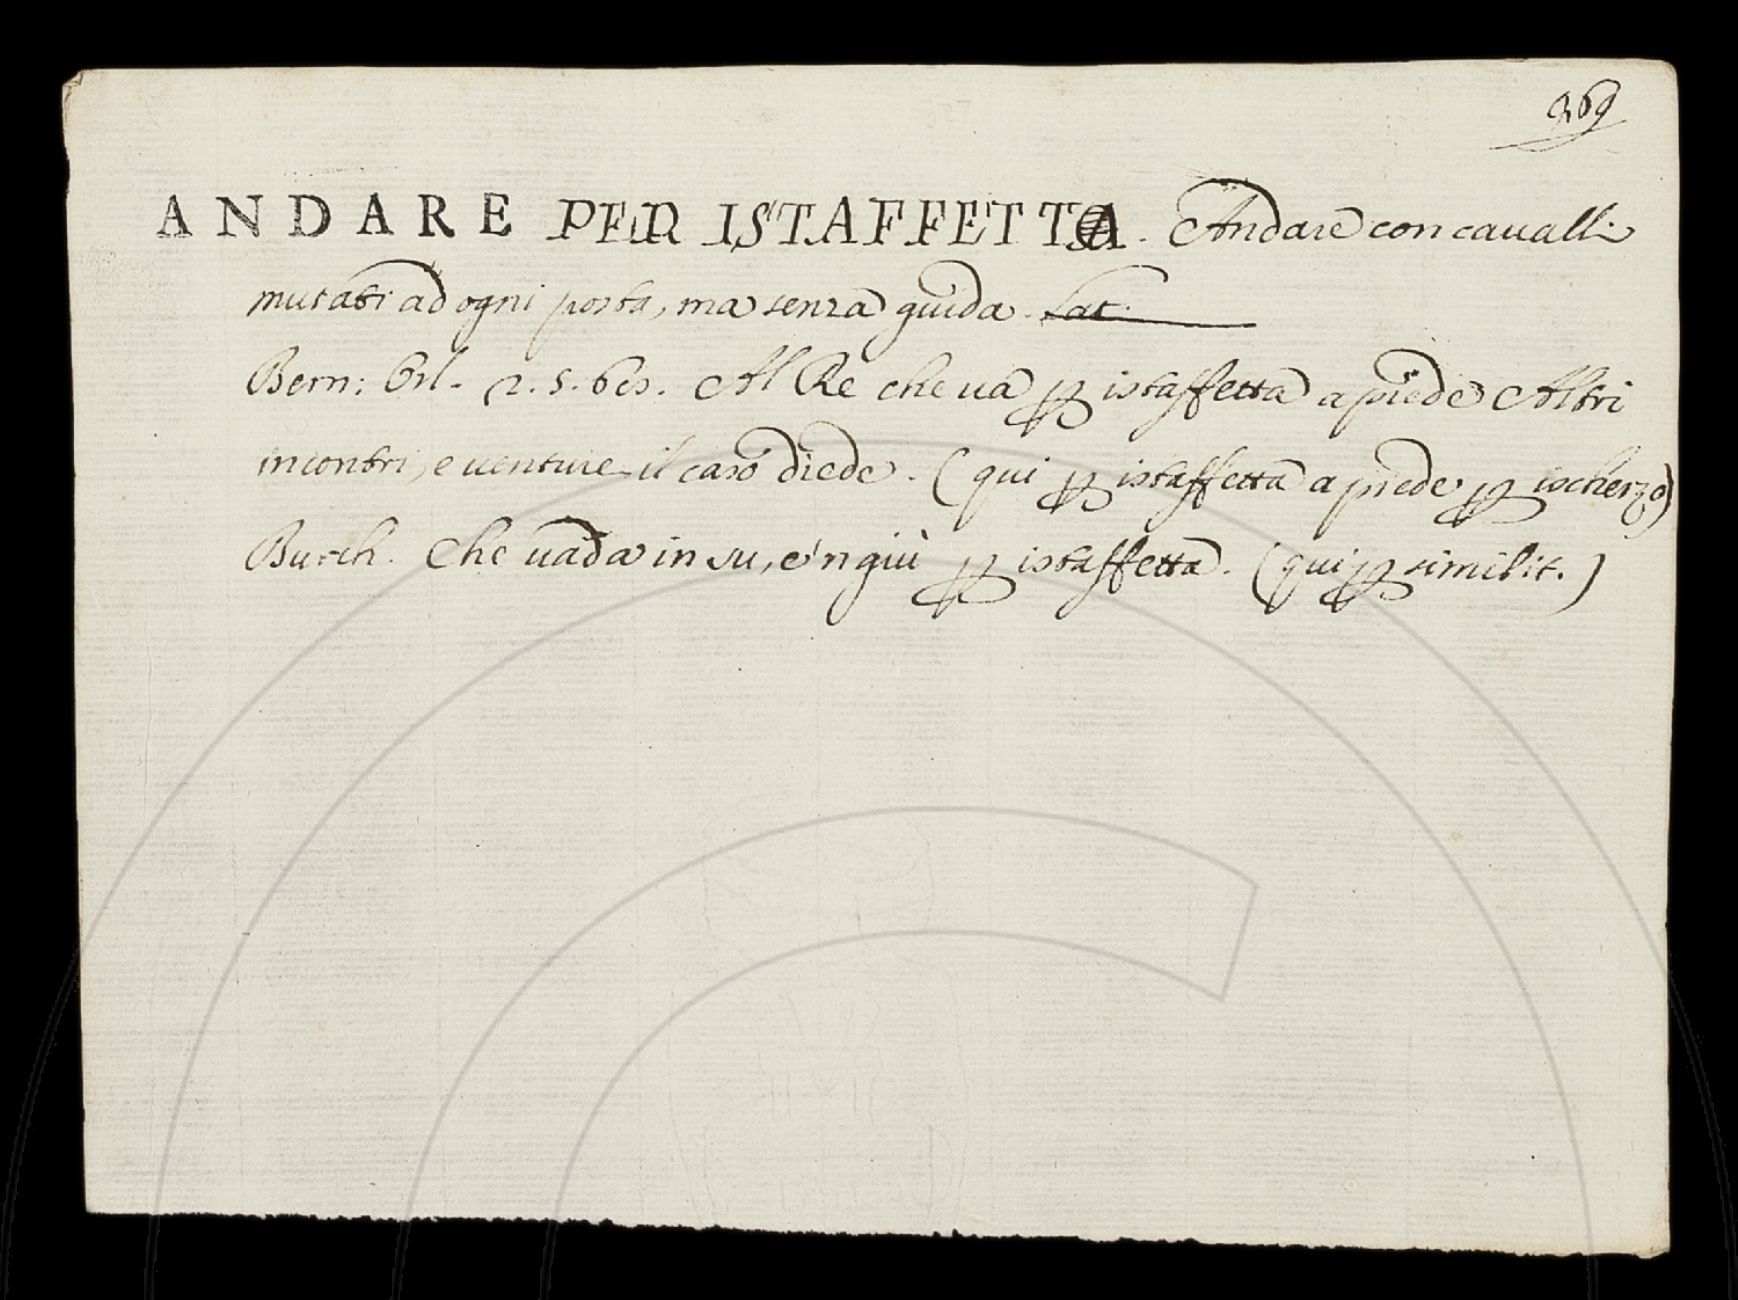 369
ANDARE PER ISTAFFETTA. Andare con cavalli
mutati ad ogni posta, ma senza guida. Lat.
Bern: Orl. 2. 5. 60. Al Re che va ꝑ istaffetta a piede Altri
incontri, e venture il caso diede. (qui ꝑ istaffetta a piede ꝑ ischerzo)
Burch. Che vada in su, e'n giù ꝑ istaffetta. (qui ꝑ similit.)